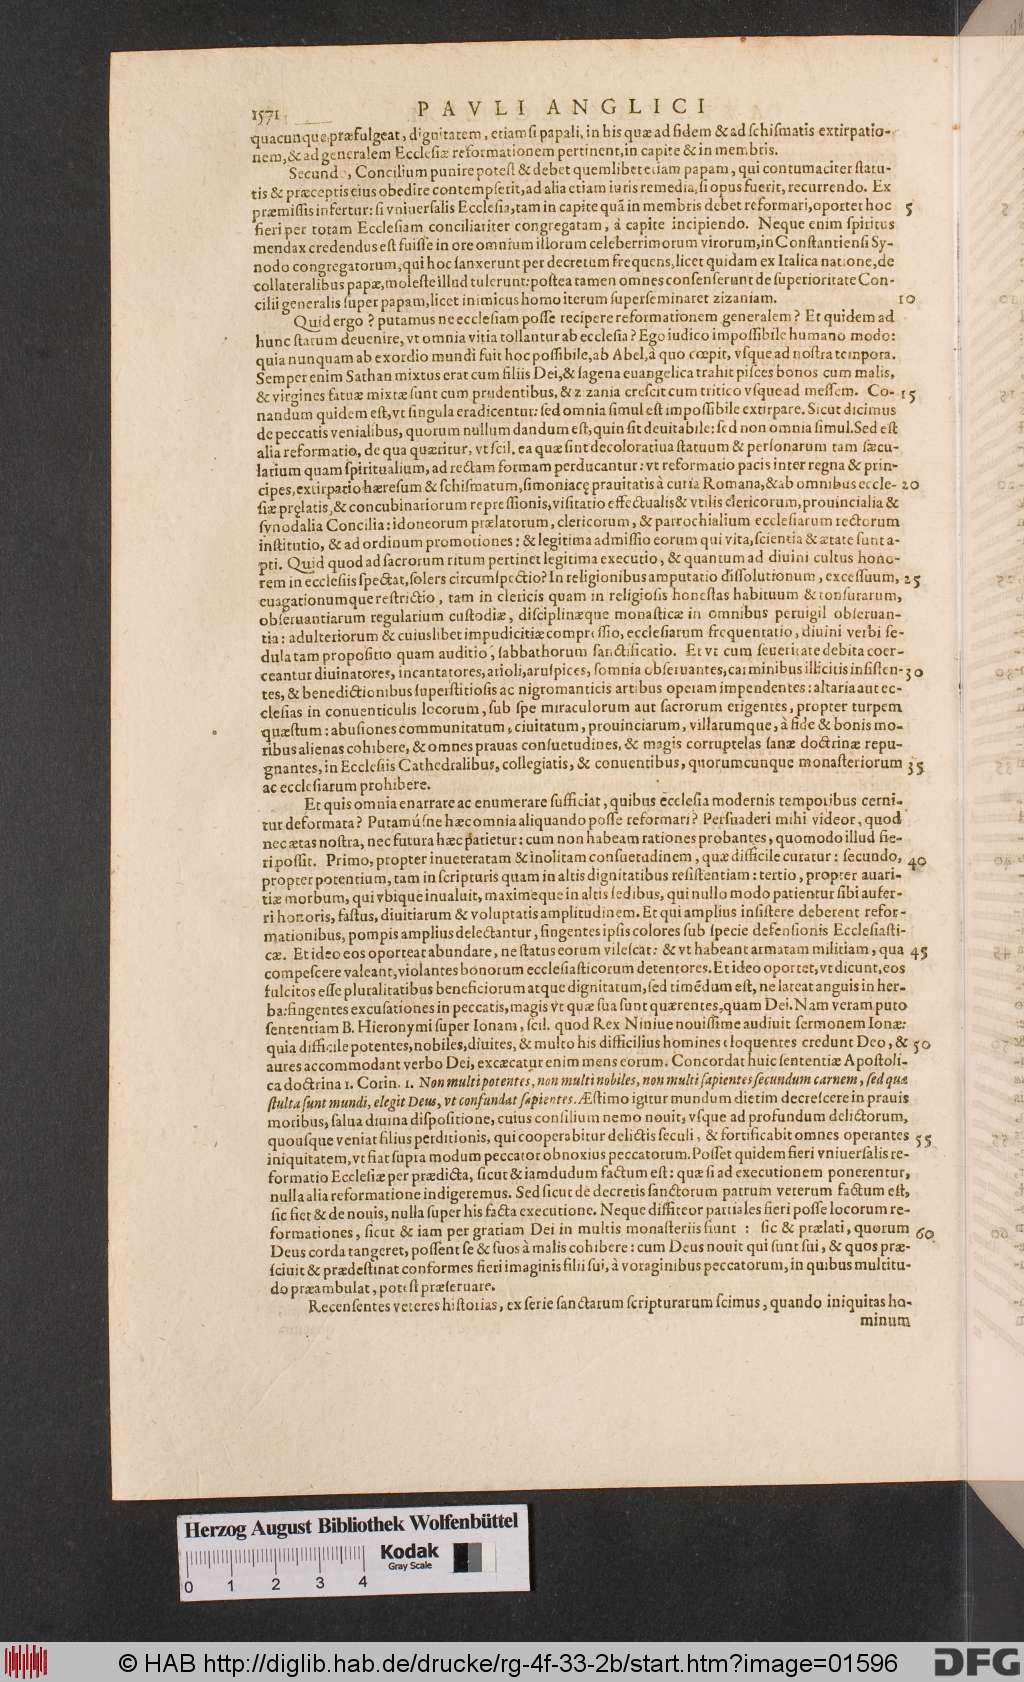 1571 PAVLI ANGLICI
quacunque præfulgeat, dignitatem, etiam si papali, in his quæ ad fidem & ad schismatis extirpatio-
nem, & ad generalem Ecclesiæ reformationem pertinent, in capite & in membris.
Secundo, Concilium punire potest & debet quemlibet etiam papam, qui contumaciter statu-
tis & præceptis eius obedire contempserit, ad alia etiam iuris remedia, si opus fuerit, recurrendo. Ex
præmissis infertur: si vniuersalis Ecclesia, tam in capite quã in membris debet reformari, oportet hoc 5
fieri per totam Ecclesiam conciliariter congregatam, à capite incipiendo. Neque enim spiritus
mendax credendus est fuisse in ore omnium illorum celeberrimorum virorum, in Constantiensi Sy-
nodo congregatorum, qui hoc sanxerunt per decretum frequens, licet quidam ex Italica natione, de
collateralibus papæ, moleste illud tulerunt: postea tamen omnes consenserunt de superioritate Con-
cilii generalis super papam, licet inimicus homo iterum superseminaret zizaniam. 10
Quid ergo? putamus ne ecclesiam posse recipere reformationem generalem? Et quidem ad
hunc statum deuenire, vt omnia vitia tollantur ab ecclesia? Ego iudico impossibile humano modo:
quia nunquam ab exordio mundi fuit hoc possibile, ab Abel, à quo cœpit, vsque ad nostra tempora.
Semper enim Sathan mixtus erat cum filiis Dei, & sagena euangelica trahit pisces bonos cum malis,
& virgines fatuæ mixtæ sunt cum prudentibus, & zizania crescit cum tritico vsque ad messem. Co- 15
nandum quidem est, vt singula eradicentur: sed omnia simul est impossibile extirpare. Sicut dicimus
de peccatis venialibus, quorum nullum dandum est, quin sit deuitabile: sed non omnia simul. Sed est
alia reformatio, de qua quæritur, vt scil. ea quæ sint decoloratiua statuum & personarum tam sæcu-
larium quam spiritualium, ad rectam formam perducantur: vt reformatio pacis inter regna & prin-
cipes, extirpatio hæresum & schismatum, simoniacę prauitatis à curia Romana, & ab omnibus eccle- 20
siæ pręlatis, & concubinariorum repressionis, visitatio effectualis & vtilis clericorum, prouincialia &
synodalia Concilia: idoneorum prælatorum, clericorum, & parrochialium ecclesiarum rectorum
institutio, & ad ordinum promotiones: & legitima admissio eorum qui vita, scientia & ætate sunt a-
pti. Quid quod ad sacrorum ritum pertinet legitima executio, & quantum ad diuini cultus hono-
rem in ecclesiis spectat, solers circumspectio? In religionibus amputatio dissolutionum, excessuum, 25
euagationumque restrictio, tam in clericis quam in religiosis honestas habituum & tonsurarum,
obseruantiarum regularium custodiæ, disciplinæque monasticæ in omnibus peruigil obseruan-
tia: adulteriorum & cuiuslibet impudicitiæ compressio, ecclesiarum frequentatio, diuini verbi se-
dula tam propositio quam auditio, sabbathorum sanctificatio. Et vt cum seueritate debita coer-
ceantur diuinatores, incantatores, arioli, aruspices, somnia obseruantes, carminibus illicitis insisten- 30
tes, & benedictionibus superstitiosis ac nigromanticis artibus operam impendentes: altaria aut ec-
clesias in conuenticulis locorum, sub spe miraculorum aut sacrorum erigentes, propter turpem
quæstum: abusiones communitatum, ciuitatum, prouinciarum, villarumque, à fide & bonis mo-
ribus alienas cohibere, & omnes prauas consuetudines, & magis corruptelas sanæ doctrinæ repu-
gnantes, in Ecclesiis Cathedralibus, collegiatis, & conuentibus, quorumcunque monasteriorum 35
ac ecclesiarum prohibere.
Et quis omnia enarrare ac enumerare sufficiat, quibus ecclesia modernis temporibus cerni-
tur deformata? Putamúsne hæc omnia aliquando posse reformari? Persuaderi mihi videor, quod
nec ætas nostra, nec futura hæc patietur: cum non habeam rationes probantes, quomodo illud fie-
ri possit. Primo, propter inueteratam & inolitam consuetudinem, quæ difficile curatur: secundo, 40
propter potentium, tam in scripturis quam in altis dignitatibus resistentiam: tertio, propter auari-
tiæ morbum, qui vbique inualuit, maximeque in altis sedibus, qui nullo modo patientur sibi aufer-
ri honoris, fastus, diuitiarum & voluptatis amplitudinem. Et qui amplius insistere deberent refor-
mationibus, pompis amplius delectantur, fingentes ipsis colores sub specie defensionis Ecclesiasti-
cæ. Et ideo eos oporteat abundare, ne status eorum vilescat: & vt habeant armatam militiam, qua 45
compescere valeant, violantes bonorum ecclesiasticorum detentores. Et ideo oportet, vt dicunt, eos
fulcitos esse pluralitatibus beneficiorum atque dignitatum, sed timẽdum est, ne lateat anguis in her-
ba: fingentes excusationes in peccatis, magis vt quæ sua sunt quærentes, quam Dei. Nam veram puto
sententiam B. Hieronymi super Ionam, scil. quod Rex Niniue nouissime audiuit sermonem Ionæ:
quia difficile potentes, nobiles, diuites, & multo his difficilius homines eloquentes credunt Deo, & 50
aures accommodant verbo Dei, excæcatur enim mens eorum. Concordat huic sententiæ Apostoli-
ca doctrina 1. Corin. 1. Non multi potentes, non multi nobiles, non multi sapientes secundum carnem, sed quæ
stulta sunt mundi, elegit Deus, vt confundat sapientes. Æstimo igitur mundum dietim decrescere in prauis
moribus, salua diuina dispositione, cuius consilium nemo nouit, vsque ad profundum delictorum,
quousque veniat filius perditionis, qui cooperabitur delictis seculi, & fortificabit omnes operantes 55
iniquitatem, vt fiat supra modum peccator obnoxius peccatorum. Posset quidem fieri vniuersalis re-
formatio Ecclesiæ per prædicta, sicut & iamdudum factum est: quæ si ad executionem ponerentur,
nulla alia reformatione indigeremus. Sed sicut de decretis sanctorum patrum veterum factum est,
sic fiet & de nouis, nulla super his facta executione. Neque diffiteor partiales fieri posse locorum re-
formationes, sicut & iam per gratiam Dei in multis monasteriis fiunt: sic & prælati, quorum 60
Deus corda tangeret, possent se & suos à malis cohibere: cum Deus nouit qui sunt sui, & quos præ-
sciuit & prædestinat conformes fieri imaginis filii sui, à voraginibus peccatorum, in quibus multitu-
do præambulat, potest præseruare.
Recensentes veteres historias, ex serie sanctarum scripturarum scimus, quando iniquitas ho-
minum
Herzog August Bibliothek Wolfenbüttel
Kodak
Gray Scale
0 1 2 3 4
© HAB http://diglib.hab.de/drucke/rg-4f-33-2b/start.htm?image=01596
DFG